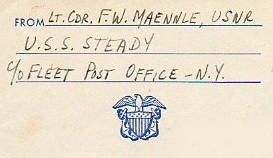 FROM LT. CDR. F. W. MAENNLE, USNR
U.S.S. STEADY
c/o FLEET POST OFFICE - N.Y.